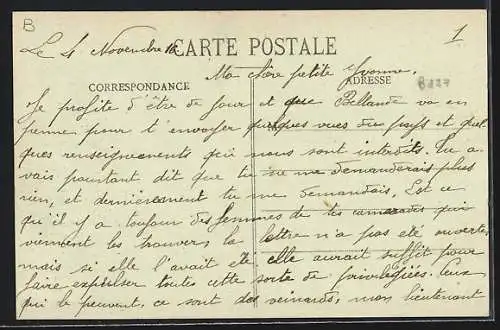 B
1
Le 4 Novembre 16
CARTE POSTALE
Ma chère petite Yvonne,
CORRESPONDANCE
ADRESSE
Je profite d'être de jour et que Bellande va en
perme pour t'envoyer quelques vues du pays et quel-
ques renseignements qui nous sont interdits. Tu a-
vais pourtant dit que tu ne me demanderais plus
rien, et dernièrement tu me demandais, Est ce
qu'il y a toujours des femmes de tes camarades qui
viennent les trouver, la lettre n'a pas été ouverte,
mais si elle l'avait été elle aurait suffit pour
faire expulser toutes cette sorte de privilégiées. Ceux
qui le peuvent, ce sont des veinards, mon lieutenant